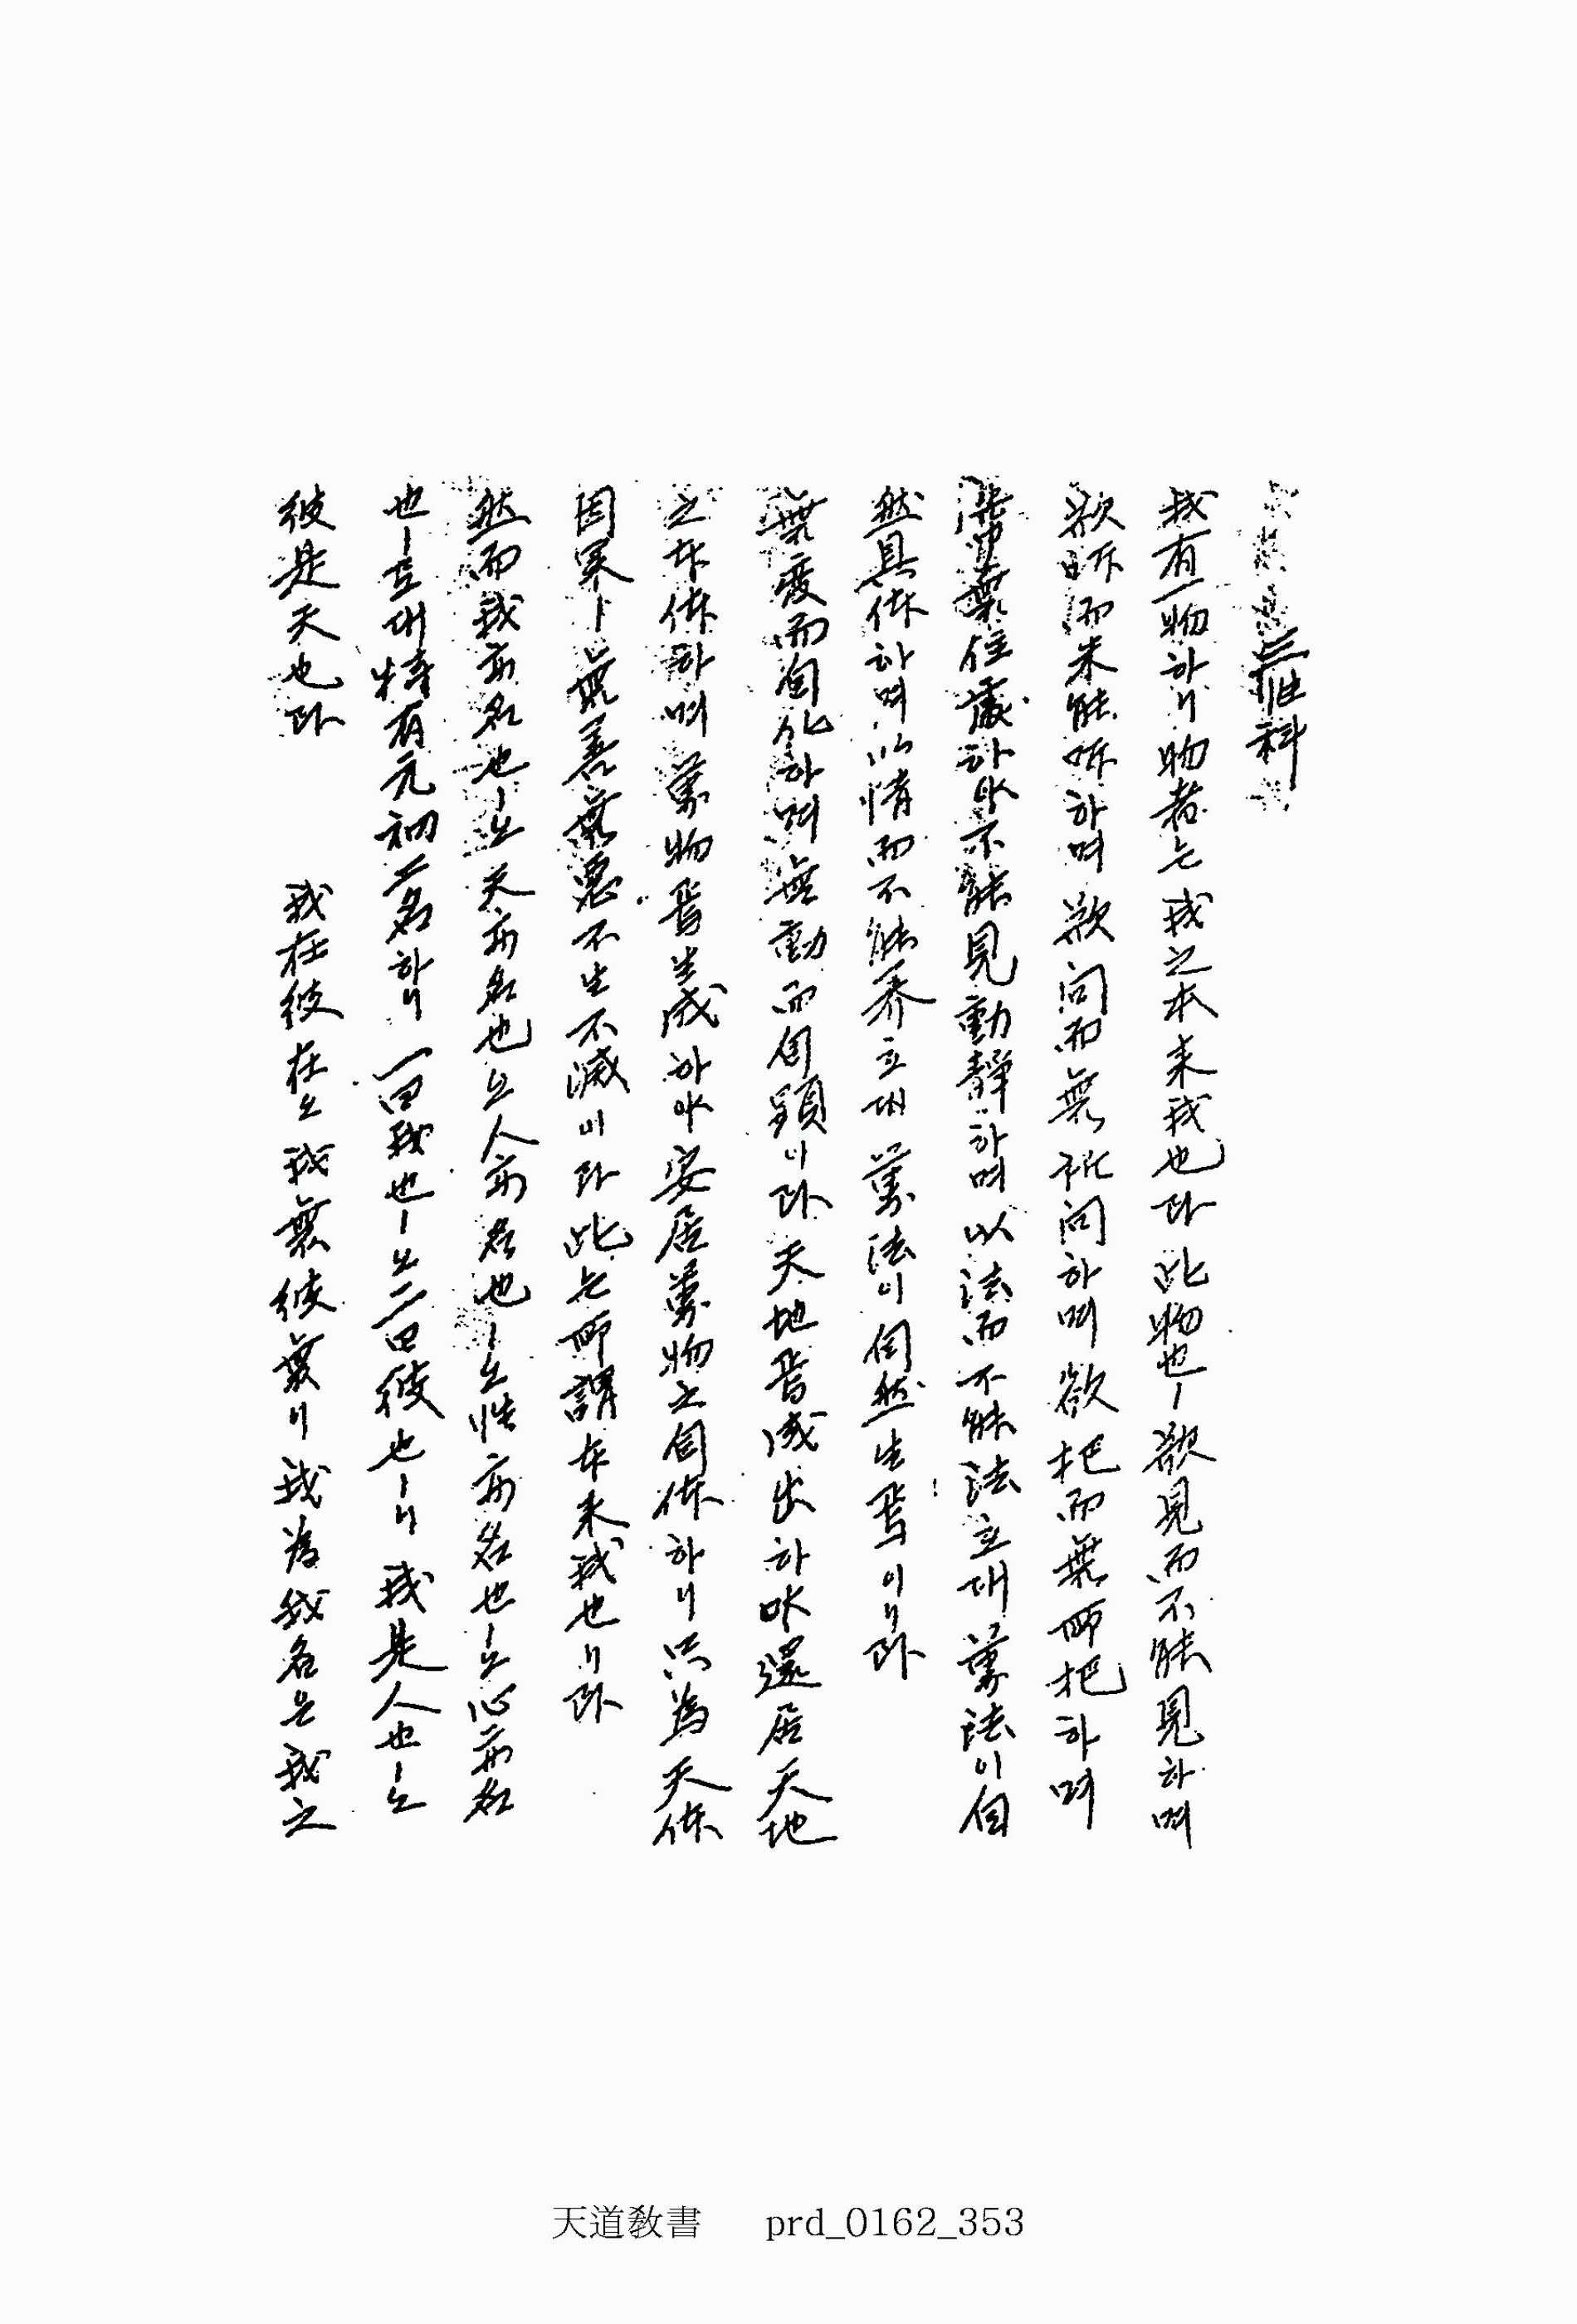 三性科
我有一物하니 物者는 我之本来我也라 此物也ㅣ 欲見而不能見하며
欲听而未能听하며 欲問而無所問하며 欲把而無所把하며
常無住處하야 不能見動靜하며 以法而不能法호대 萬法이 自
然具体하며 以情而不能養호대 萬法이 自然生焉이니라
無變而自化하며 無動而自顯이라 天地焉成出하야 還居天地
之本体하며 萬物焉生成하야 安居萬物之自体하니 只為天体
因果ㅣ 無善無惡 不生不滅이라 此는 所謂本来我也니라
然而我亦名也ㅣ오 天亦名也오 人亦名也ㅣ오 性亦名也ㅣ오 心亦名
也ㅣ로대 特有元初二名하니 一曰我也ㅣ오 二曰彼也ㅣ니 我是人也ㅣ오
彼是天也라 我在彼在오 我無彼無니 我為我名은 我之
天道敎書 prd_0162_353